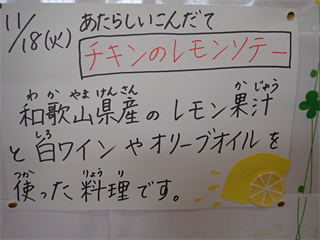 11/18(火) あたらしいこんだて
チキンのレモンソテー
わかやまけんさん かじゅう
和歌山県産のレモン果汁
しろ
と白ワインやオリーブオイルを
つか りょうり
使った料理です。